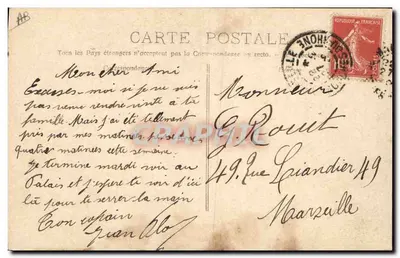 AB
CARTE POSTALE
Tous les Pays étrangers n'acceptent pas la Correspondance au recto.
Correspondance
Mon cher Ami
Excuses-moi si je ne suis
pas venu rendre visite à ta
famille Mais j'ai été tellement
pris par mes matinées
quatre matinées cette semaine.
Je termine mardi soir au
Palais et j'espère te voir d'ici
là pour te serrer la main
Ton copain
Jean
Monsieur
G. Bouit
49, Rue Liandier 49
Marseille